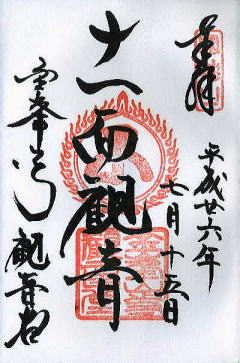 奉拝
平成廿六年
七月十五日
十一面観音
観音寺